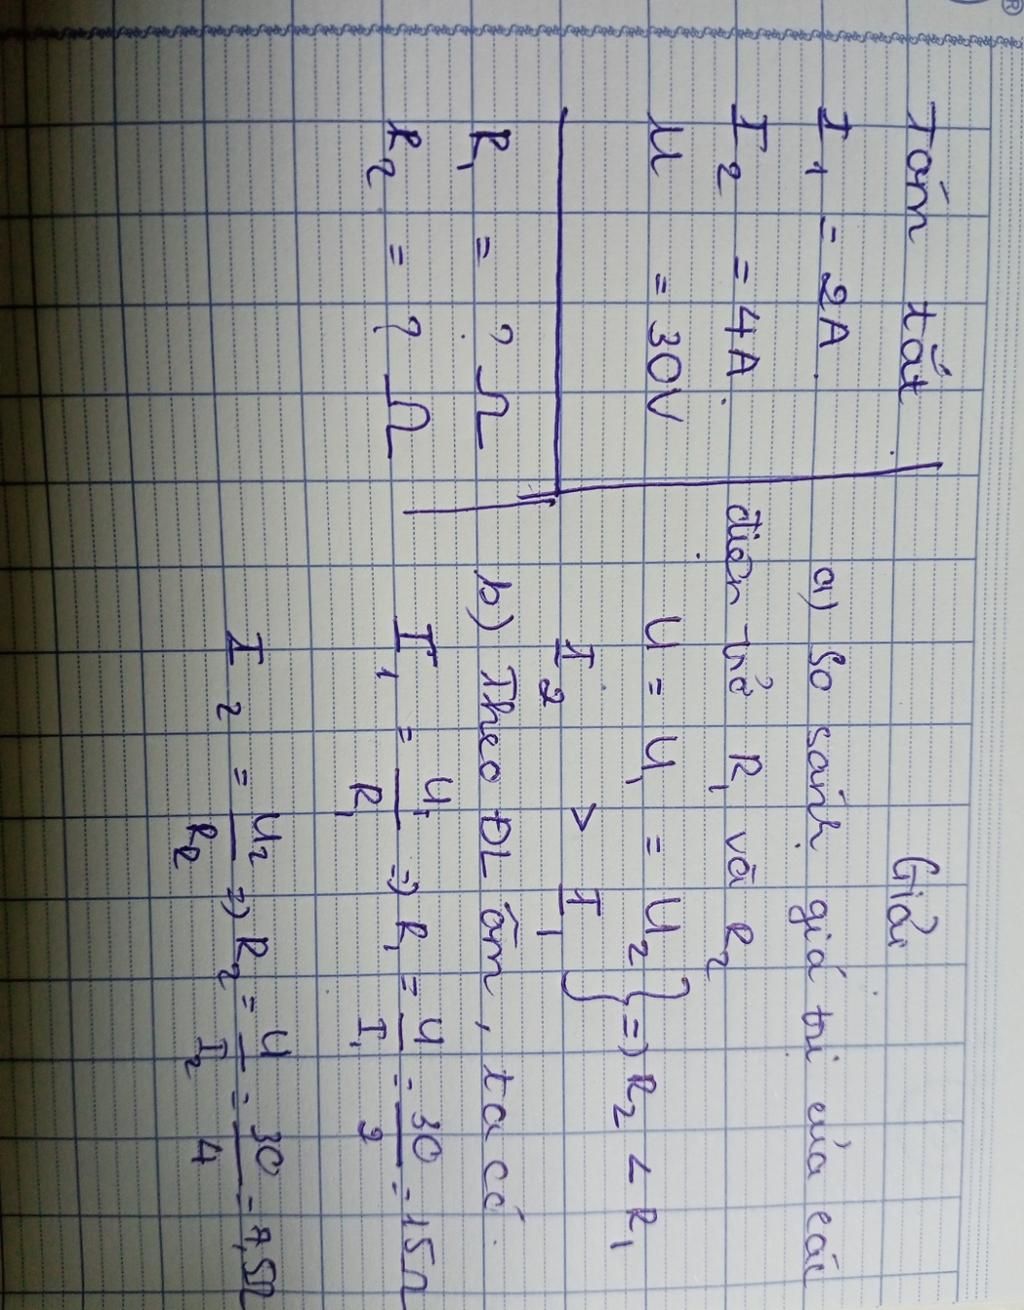 Tóm tắt
I₁ = 2A.
I₂ = 4A.
U = 30V
R₁ = ? Ω
R₂ = ? Ω
Giải
a) So sánh giá trị của các
điện trở R₁ và R₂
U = U₁ = U₂ } => R₂ < R₁
I₂ > I₁
b) Theo ĐL ôm, ta có.
I₁ = U₁/R₁ => R₁ = U/I₁ = 30/2 = 15Ω
I₂ = U₂/R₂ => R₂ = U/I₂ = 30/4 = 7,5Ω